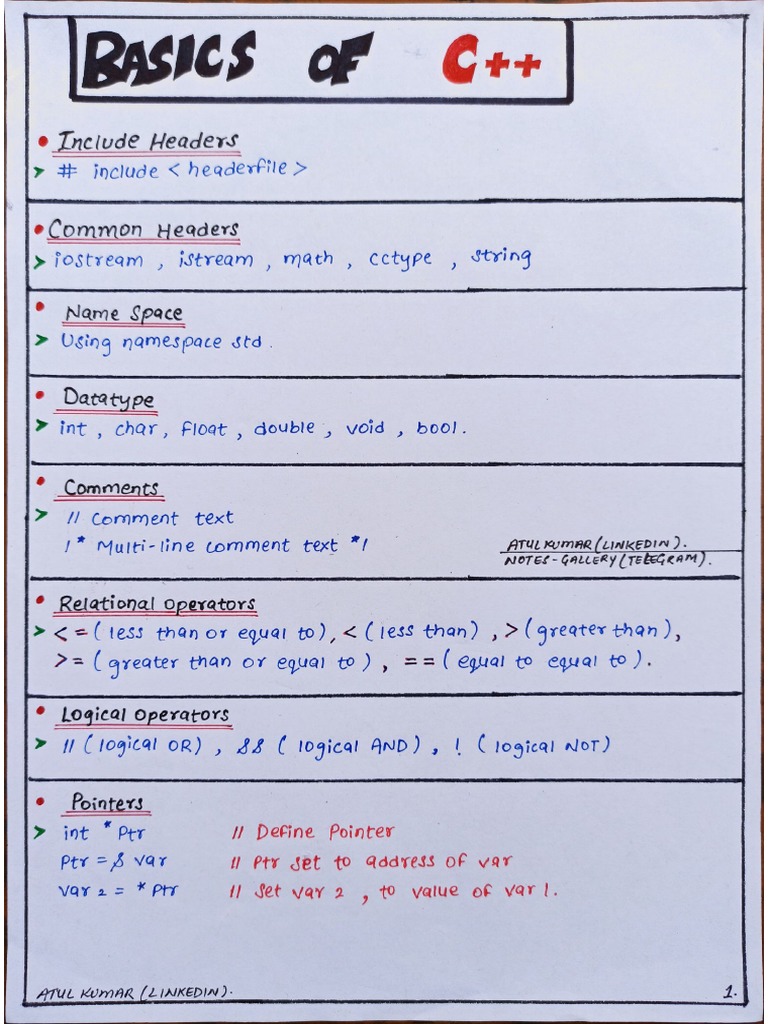 BASICS OF C++
Include Headers
# include <headerfile>
Common Headers
iostream , istream , math , cctype , string
Name Space
Using namespace std.
Datatype
int , char, float , double , void , bool.
Comments
// Comment text
/* Multi-line comment text */
ATUL KUMAR (LINKEDIN).
NOTES-GALLERY (TELEGRAM).
Relational Operators
<= (less than or equal to), < (less than) , > (greater than),
>= (greater than or equal to) , == (equal to equal to).
Logical Operators
|| (logical OR) , && (logical AND) , ! (logical NOT)
Pointers
int *Ptr // Define Pointer
Ptr = & var // Ptr set to address of var
Var 2 = *Ptr // Set var 2 , to value of var 1.
ATUL KUMAR (LINKEDIN).
1.